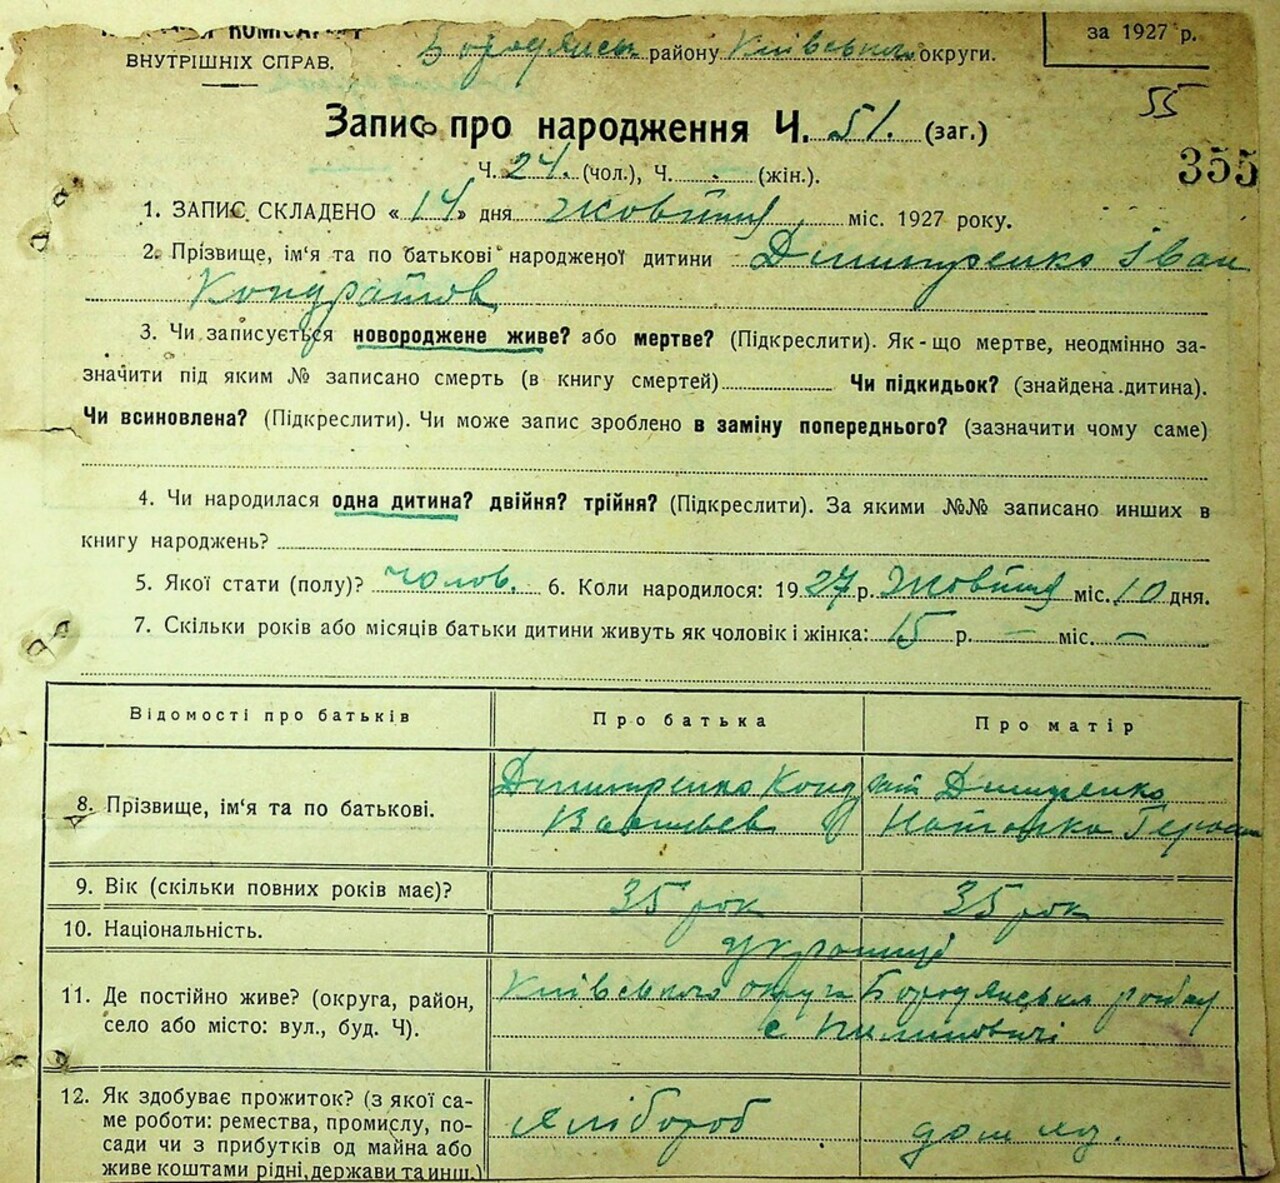 ВНУТРІШНІХ СПРАВ.
Бородянськ району Київської округи.
за 1927 р.
55
Запис про народження Ч. 51. (заг.)
355
Ч. 24. (чол.), Ч. - (жін.).
1. ЗАПИС СКЛАДЕНО «14» дня Жовтня міс. 1927 року.
2. Прізвище, ім'я та по батькові народженої дитини Дмитренко Іван
Кондратов
3. Чи записується новороджене живе? або мертве? (Підкреслити). Як-що мертве, неодмінно за-
значити під яким № записано смерть (в книгу смертей) Чи підкидьок? (знайдена дитина).
Чи всиновлена? (Підкреслити). Чи може запис зроблено в заміну попереднього? (зазначити чому саме)
4. Чи народилася одна дитина? двійня? трійня? (Підкреслити). За якими №№ записано инших в
книгу народжень?
5. Якої стати (полу)? чолов. 6. Коли народилося: 1927 р. Жовтня міс. 10 дня.
7. Скільки років або місяців батьки дитини живуть як чоловік і жінка: 15 р. — міс. —
Відомості про батьків Про батька Про матір
8. Прізвище, ім'я та по батькові.
Дмитренко Кондрат Дмитренко
Васильєв Наталка Герас
9. Вік (скільки повних років має)? 35 рок 35 рок
10. Національність. українці
11. Де постійно живе? (округа, район,
село або місто: вул., буд. Ч).
Київського округа Бородянська району
с Пилиповичі
12. Як здобуває прожиток? (з якої са-
ме роботи: ремества, промислу, по-
сади чи з прибутків од майна або
живе коштами рідні, держави та инш.)
Хлібороб дом хоз.